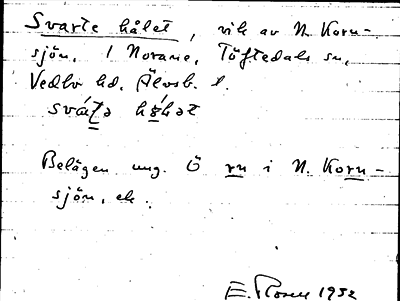 Svarte hålet, vik av N. Korn-
sjön. I Norane, Töftedals sn,
Vedbo hd, Älvsb. l.
svát̲ə hɷ́lət
Belägen ung. Ö rn i N. Korn-
sjön, ek.
E. Rosell 1932